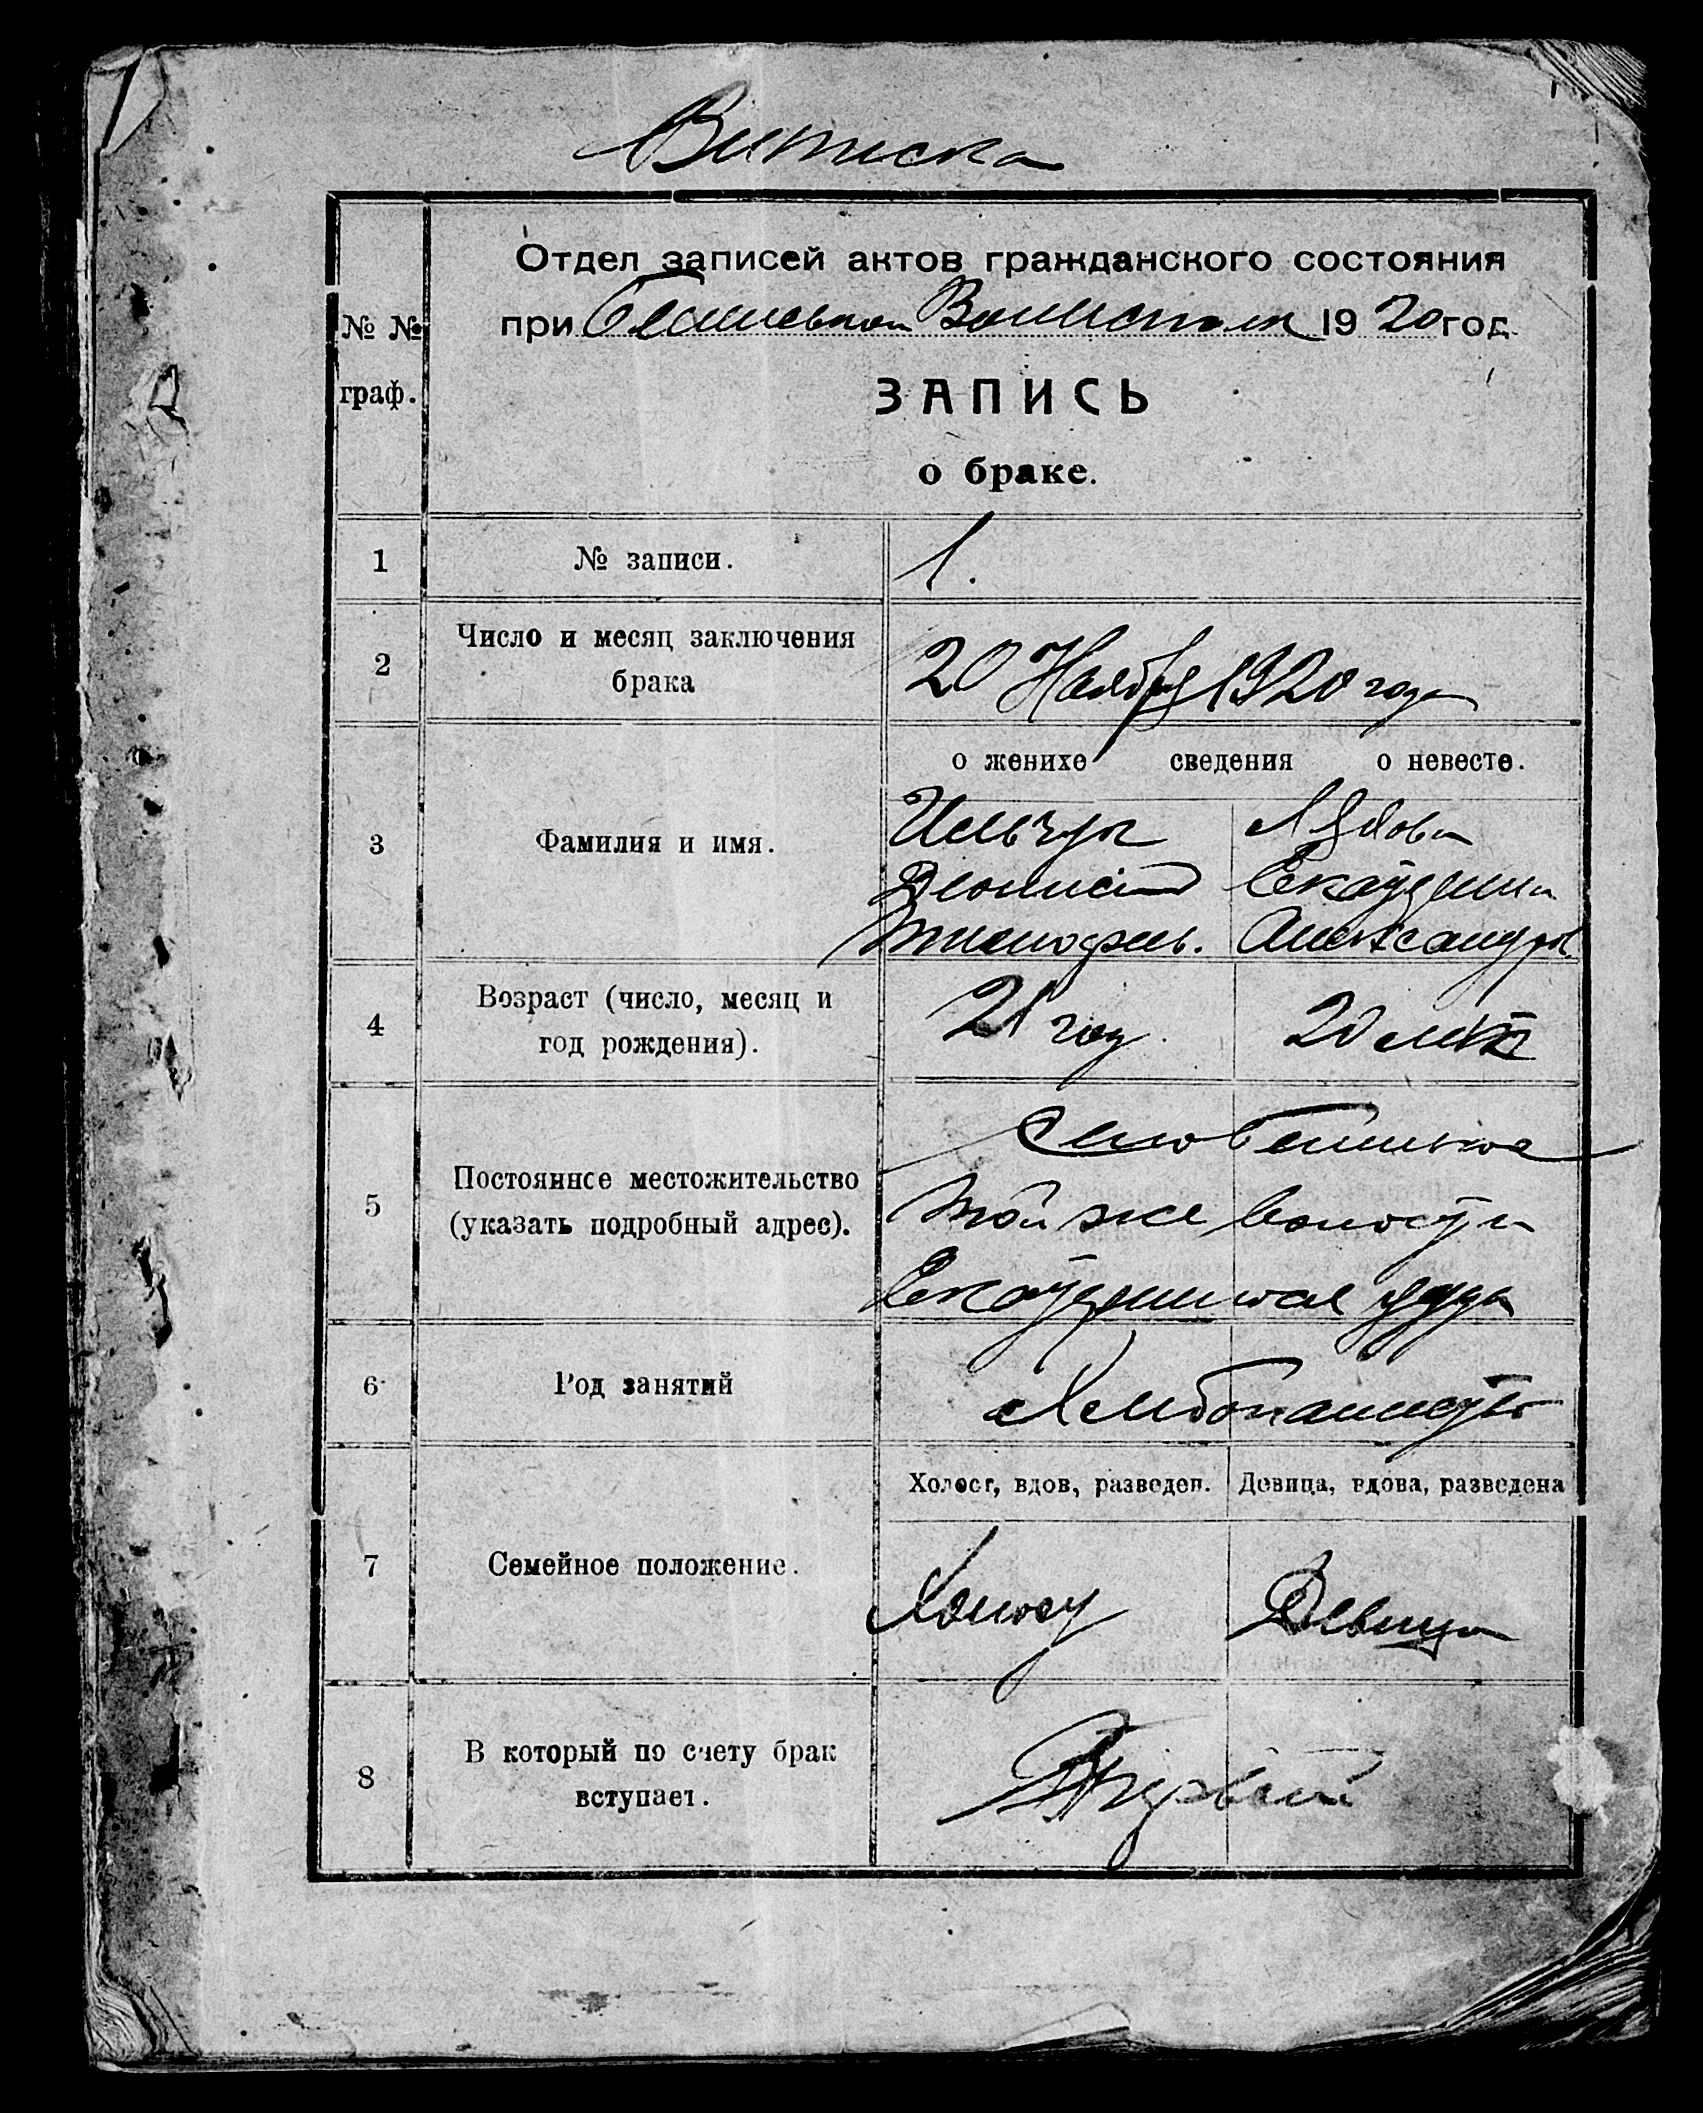 Выписка
Отдел записей актов гражданского состояния
при 1920 год.
№ №
граф.
ЗАПИСЬ
о браке.
1 № записи. 1.
2 Число и месяц заключения
брака
20 Ноября 1920 года
о женихе сведения о невесте.
3 Фамилия и имя.
Ильчук
Дионисий Екатерина
Тимофеев. Александр.
4 Возраст (число, месяц и
год рождения).
21 год. 20 летъ
5 Постоянное местожительство
(указать подробный адрес).
Село
той же волости
уезда
6 Род занятий
Хлебопашество
Холост, вдов, разведен. Девица, вдова, разведена
7 Семейное положение.
Холост Девица
8 В который по счету брак
вступает.
Первый